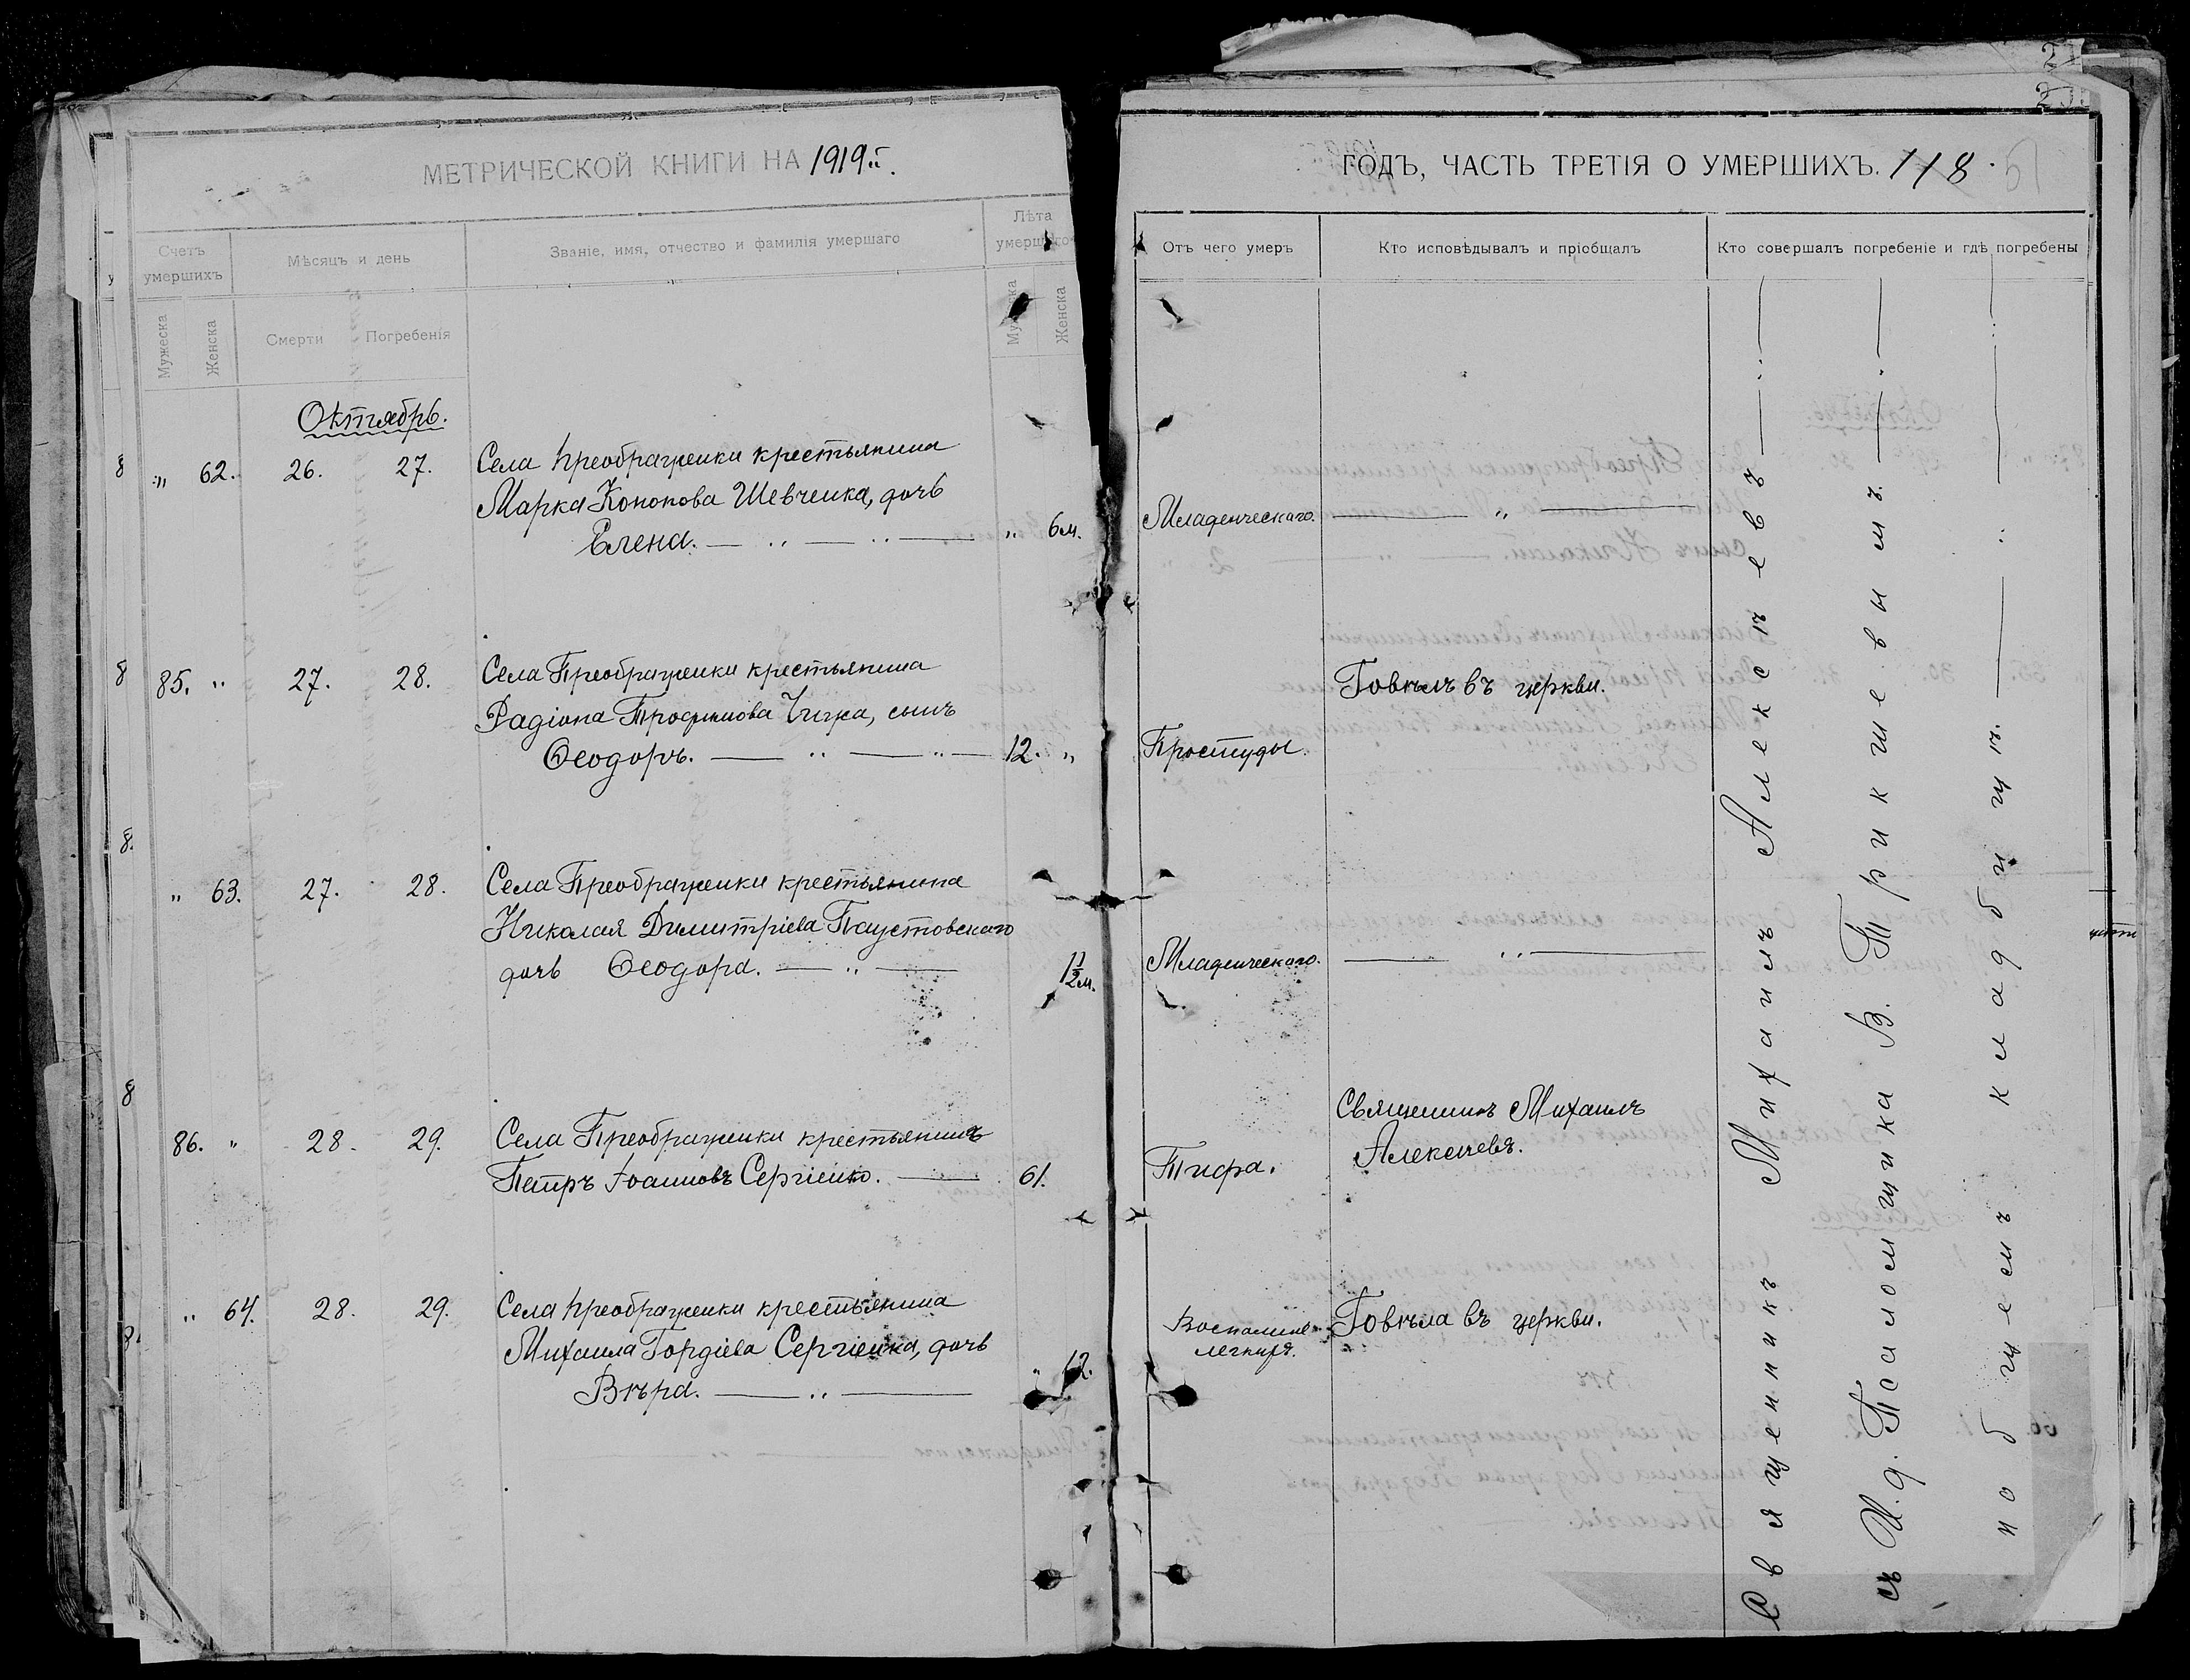 МЕТРИЧЕСКОЙ КНИГИ НА 1919й.
Счетъ умершихъ
Мѣсяцъ и день
Званіе, имя, отчество и фамилія умершаго
Лѣта
Мужеска
Женска
Смерти
Погребенія
Женска
Октябрь.
„ 62. 26. 27. Села Преображенки крестьянина
Марка Кононова Шевченка, дочь
Елена. „ 6 м.
85. „ 27. 28. Села Преображенки крестьянина
Радіона Трофимова Чижа, сынъ
Ѳеодоръ. 12. „
„ 63. 27. 28. Села Преображенки крестьянина
Николая Димитріева Паустовскаго
дочь Ѳеодора. 1 1/2 м.
86. „ 28. 29. Села Преображенки крестьянинъ
Петръ Іоанновъ Сергіенко. 61.
„ 64. 28. 29. Села Преображенки крестьянина
Михаила Гордіева Сергіенка, дочь
Вѣра. „ 12.
ГОДЪ, ЧАСТЬ ТРЕТІЯ О УМЕРШИХЪ. 118.
Отъ чего умеръ
Кто исповѣдывалъ и пріобщалъ
Кто совершалъ погребеніе и гдѣ погребены
Младенческаго. „
Говѣлъ въ церкви.
Простуды
Младенческаго. „
Священникъ Михаилъ
Алексѣевъ.
Тифа.
Воспаленіе Говѣла въ церкви.
легкихъ.
Священникъ Михаилъ Алексѣевъ
съ И. д. Псаломщика В. Трикшевымъ.
на общемъ кладбищѣ.